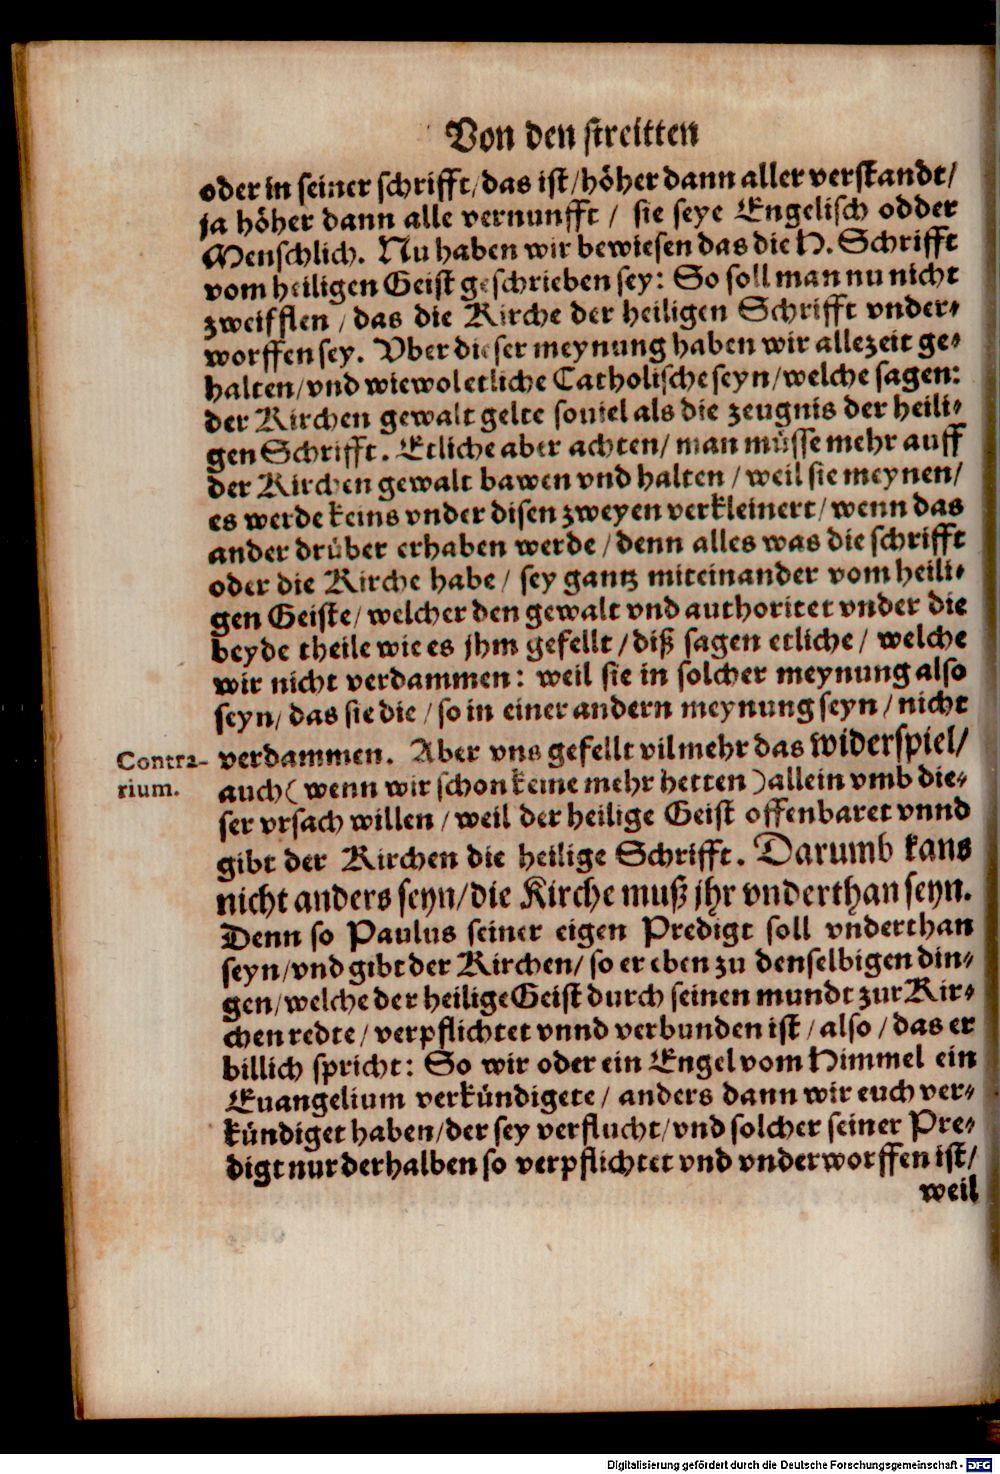 Von den streitten
oder in seiner schrifft/das ist/höher dann aller verstandt/
ja höher dann alle vernunfft / sie seye Engelisch odder
Menschlich. Nu haben wir bewiesen das die H. Schrifft
vom heiligen Geist geschrieben sey: So soll man nu nicht
zweifflen / das die Kirche der heiligen Schrifft vnder-
worffen sey. Vber dieser meynung haben wir allezeit ge-
halten/vnd wiewol etliche Catholische seyn/welche sagen:
der Kirchen gewalt gelte souiel als die zeugnis der heili-
gen Schrifft. Etliche aber achten/ man müsse mehr auff
der Kirchen gewalt bawen vnd halten / weil sie meynen/
es werde keins vnder disen zweyen verkleinert/wenn das
ander drüber erhaben werde / denn alles was die schrifft
oder die Kirche habe / sey gantz miteinander vom heili-
gen Geiste/welcher den gewalt vnd authoritet vnder die
beyde theile wie es jhm gefellt /diß sagen etliche / welche
wir nicht verdammen: weil sie in solcher meynung also
seyn/das sie die / so in einer andern meynung seyn / nicht
Contra-
rium.
verdammen. Aber vns gefellt vil mehr das widerspiel/
auch ( wenn wir schon keine mehr hetten ) allein vmb die-
ser vrsach willen / weil der heilige Geist offenbaret vnnd
gibt der Kirchen die heilige Schrifft. Darumb kans
nicht anders seyn/die Kirche muß jhr vnderthan seyn.
Denn so Paulus seiner eigen Predigt soll vnderthan
seyn/vnd gibt der Kirchen/ so er eben zu denselbigen din-
gen/welche der heilige Geist durch seinen mundt zur Kir-
chen redte / verpflichtet vnnd verbunden ist / also / das er
billich spricht: So wir oder ein Engel vom Himmel ein
Euangelium verkündigete / anders dann wir euch ver-
kündiget haben/der sey verflucht/vnd solcher seiner Pre-
digt nur derhalben so verpflichtet vnd vnderworffen ist/
weil
Digitalisierung gefördert durch die Deutsche Forschungsgemeinschaft - DFG